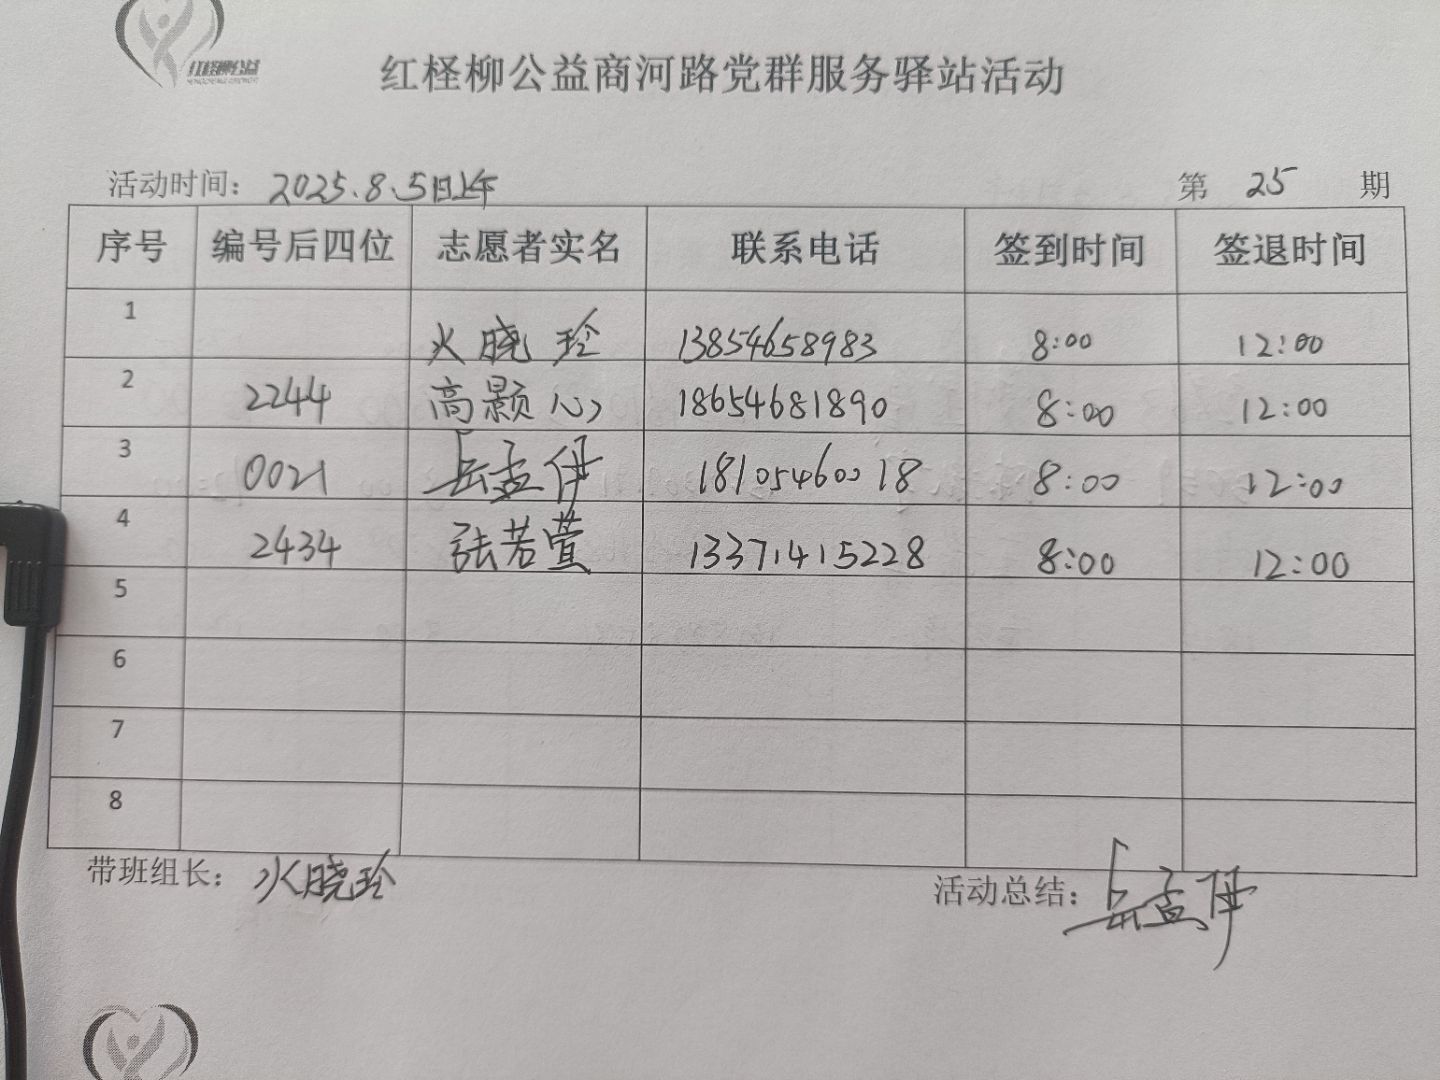 红柽柳公益
红柽柳公益商河路党群服务驿站活动
活动时间：2025.8.5日上午 第 25 期
序号 编号后四位 志愿者实名 联系电话 签到时间 签退时间
1 火晓玲 13854658983 8:00 12:00
2 2244 高颢心 18654681890 8:00 12:00
3 0021 岳孟伊 18105460018 8:00 12:00
4 2434 张若萱 13371415228 8:00 12:00
5
6
7
8
带班组长：火晓玲 活动总结：岳孟伊